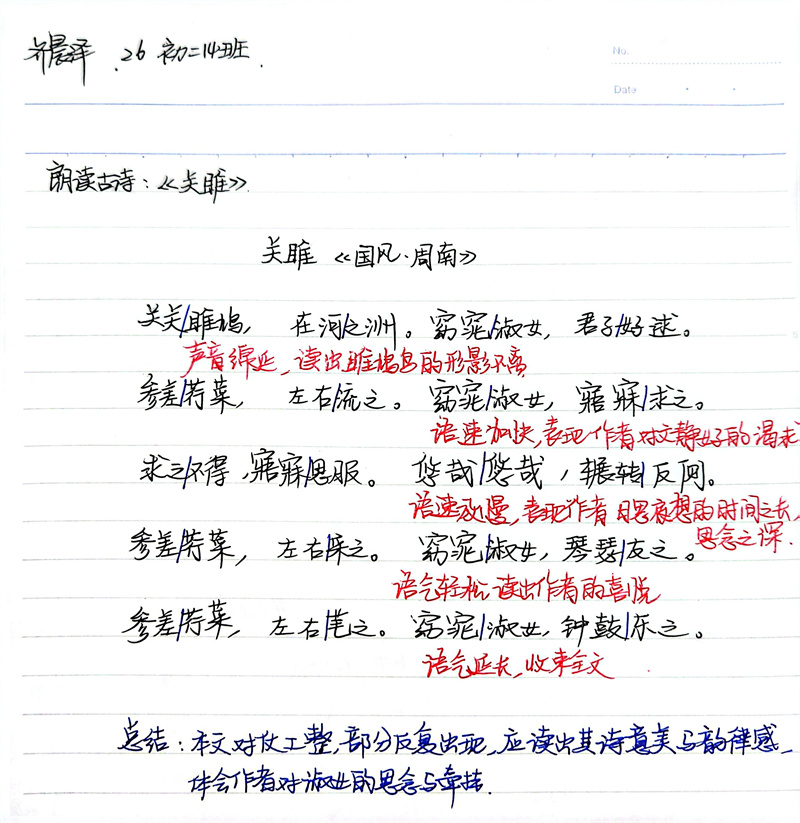 齐晨泽 . 26 初二14班 .
No.
Date
朗读古诗：《关雎》
关雎 《国风·周南》
关关/雎鸠， 在河/之洲。 窈窕/淑女， 君子/好逑。
声音绵延，读出雎鸠鸟的形影不离
参差/荇菜， 左右/流之。 窈窕/淑女， 寤寐/求之。
语速加快，表现作者对文静好的渴求
求之/不得，寤寐/思服。 悠哉/悠哉，辗转/反侧。
语速放慢，表现作者日思夜想的时间之长，
思念之深.
参差/荇菜， 左右/采之。 窈窕/淑女，琴瑟/友之。
语气轻松 读出作者的喜悦
参差/荇菜， 左右/芼之。 窈窕/淑女，钟鼓/乐之。
语气延长，收束全文
总结：本文对仗工整，部分反复出现，应读出其诗意美与韵律感，
体会作者对淑女的思念与牵挂.